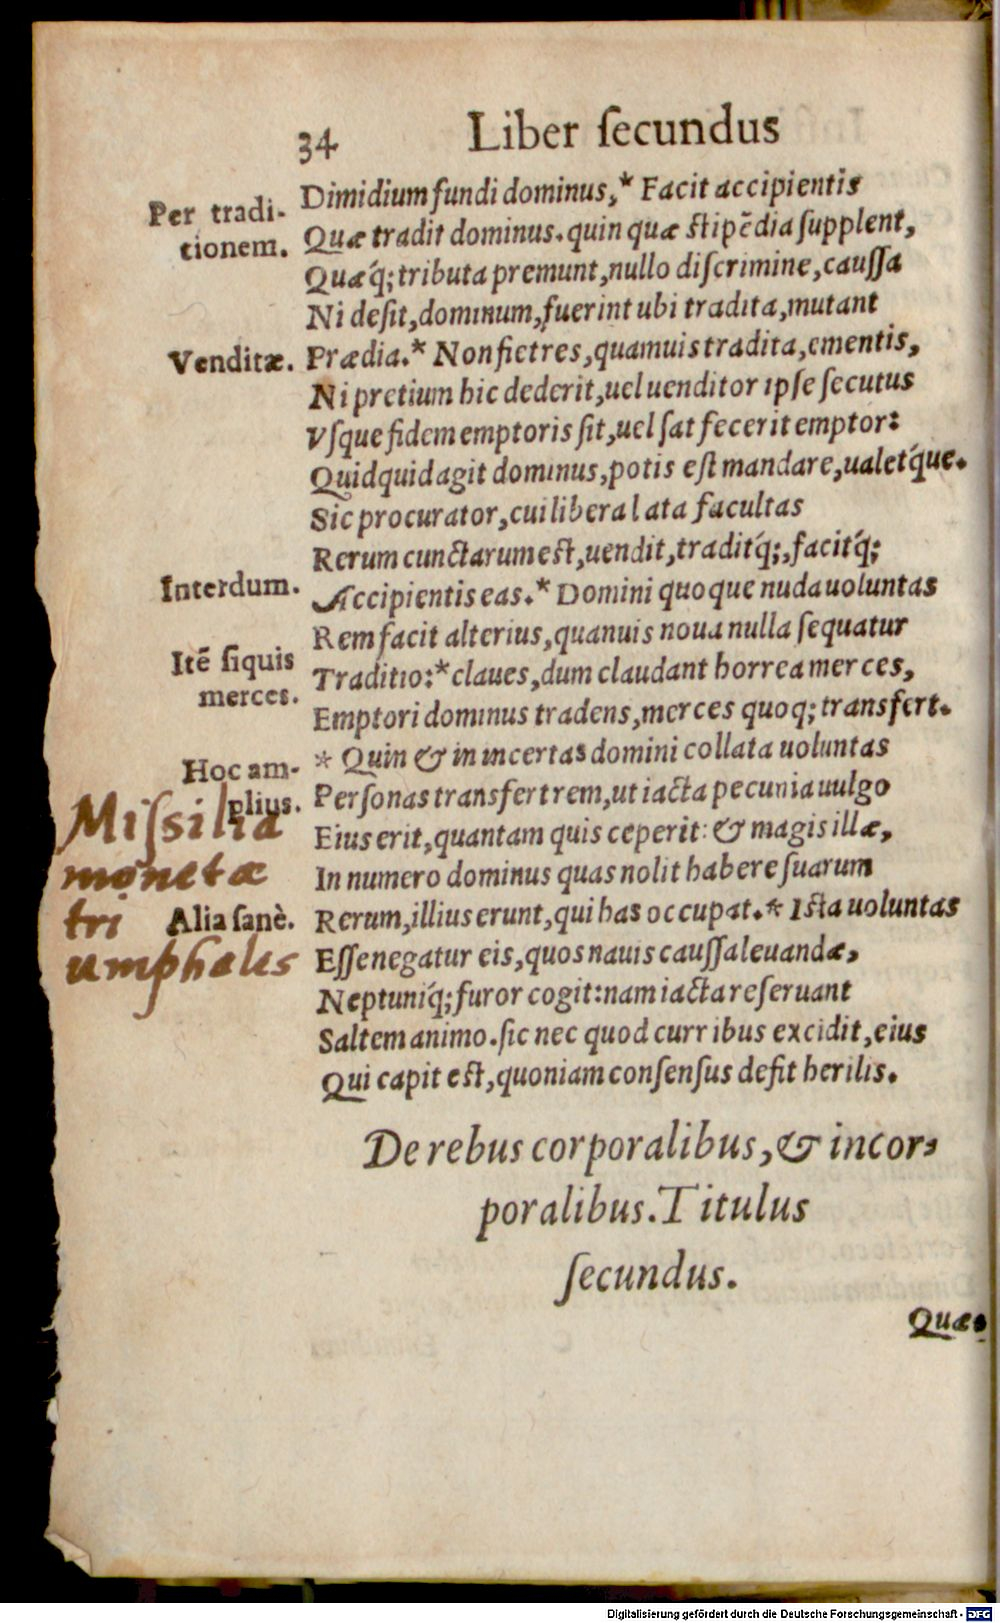 34 Liber ſecundus
Per tradi-
tionem.
Dimidium fundi dominus,* Facit accipientis
Quæ tradit dominus. quin quæ ſtipēdia ſupplent,
Quæq́; tributa premunt, nullo diſcrimine, cauſſa
Ni deſit, dominum, fuerint ubi tradita, mutant
Venditæ.
Prædia.* Non fiet res, quamuis tradita, ementis,
Ni pretium hic dederit, uel uenditor ipſe ſecutus
Vſque fidem emptoris ſit, uel ſat fecerit emptor:
Quidquid agit dominus, potis eſt mandare, ualet́que.
Sic procurator, cui libera lata facultas
Rerum cunctarum eſt, uendit, tradit́q;, facit́q;
Interdum.
Accipientis eas.* Domini quoque nuda uoluntas
Rem facit alterius, quanuis noua nulla ſequatur
Itē ſiquis
merces.
Traditio:* claues, dum claudant horrea merces,
Emptori dominus tradens, merces quoq; transfert.
Hoc am-
plius.
* Quin & in incertas domini collata uoluntas
Perſonas transfert rem, ut iacta pecunia uulgo
Eius erit, quantam quis ceperit: & magis illæ,
In numero dominus quas nolit habere ſuarum
Miſsilia
monetæ
tri
umphales
Alia ſanè.
Rerum, illius erunt, qui has occupat.* Iſta uoluntas
Eſſe negatur eis, quos nauis cauſſa leuandæ,
Neptuniq́; furor cogit: nam iacta reſeruant
Saltem animo. ſic nec quod curribus excidit, eius
Qui capit eſt, quoniam conſenſus defit herilis.
De rebus corporalibus, & incor-
poralibus. Titulus
ſecundus.
Quæ-
Digitalisierung gefördert durch die Deutsche Forschungsgemeinschaft - DFG